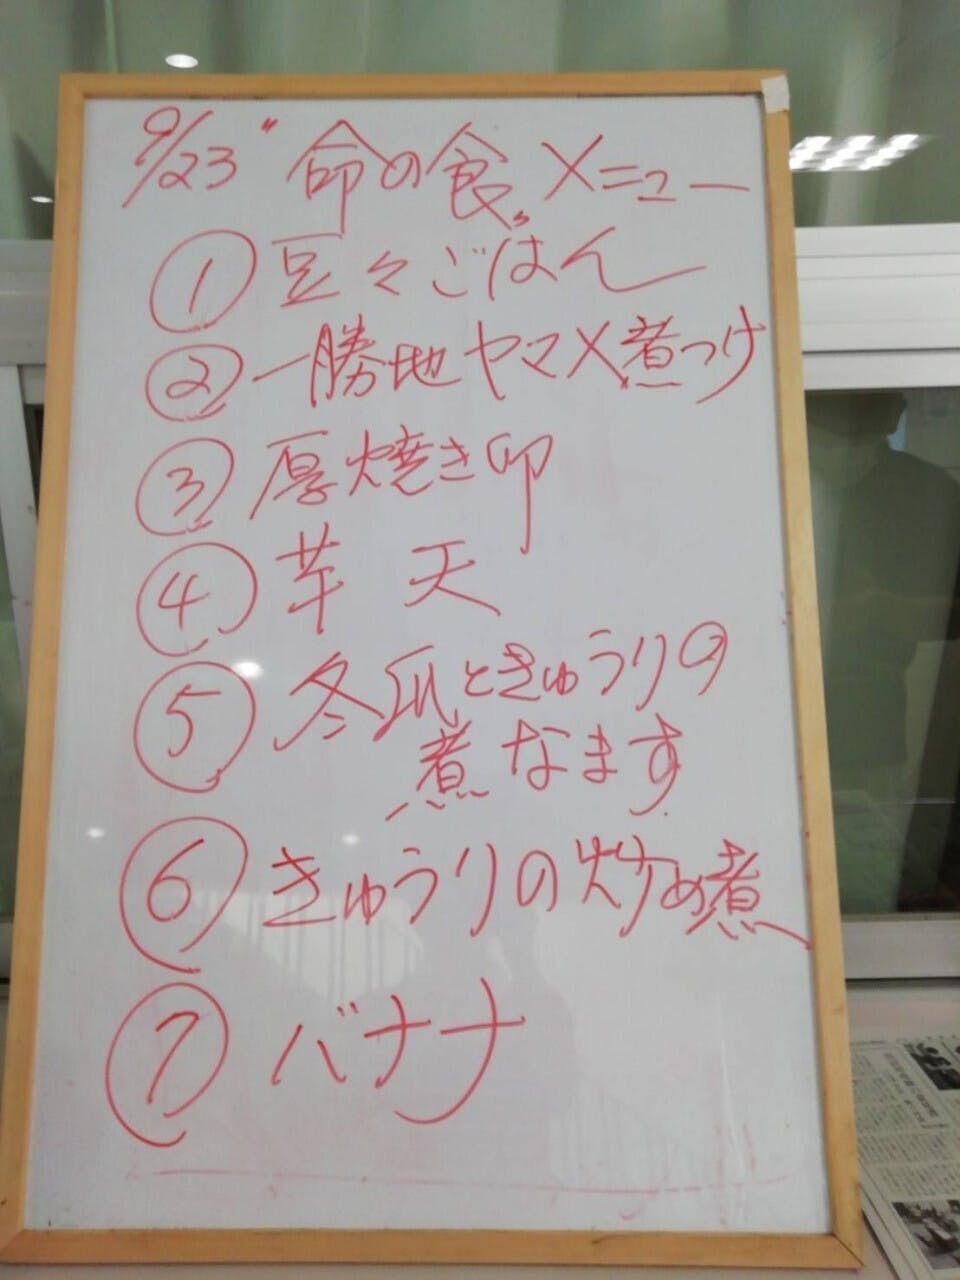 9/23 "命の食" メニュー
① 豆々ごはん
② 一勝地ヤマメ煮つけ
③ 厚焼き卵
④ 芋天
⑤ 冬瓜ときゅうりの
煮なます
⑥ きゅうりの炒め煮
⑦ バナナ